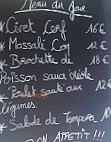 Menu du Jour
* Civet Cerf 16 €
* Massalé Co 12 €
* Brochette d 18 €
Poisson sauce
* Poulet sauté aux 12 €
légumes.
* Salade de Tempura 10
BON APPETIT !!!